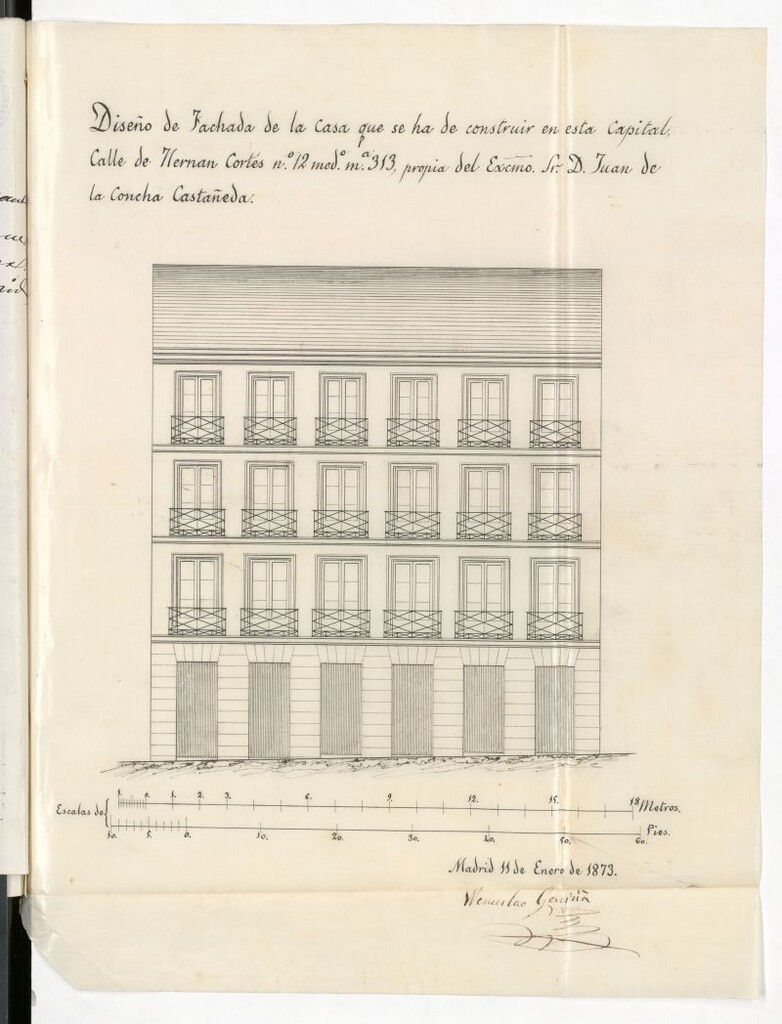 Diseño de Fachada de la Casa que se ha de construir en esta Capital,
Calle de Hernan Cortés n.º 12 mod.º m.ª 313, propia del Excmo. Sr. D. Juan de
la Concha Castañeda:
1. 0. 1. 2. 3. 6. 9. 12. 15. 18 Metros.
Escalas de
10. 5. 0. 10. 20. 30. 40. 50. 60. Pies.
Madrid 11 de Enero de 1873.
Wenceslao Gaviña